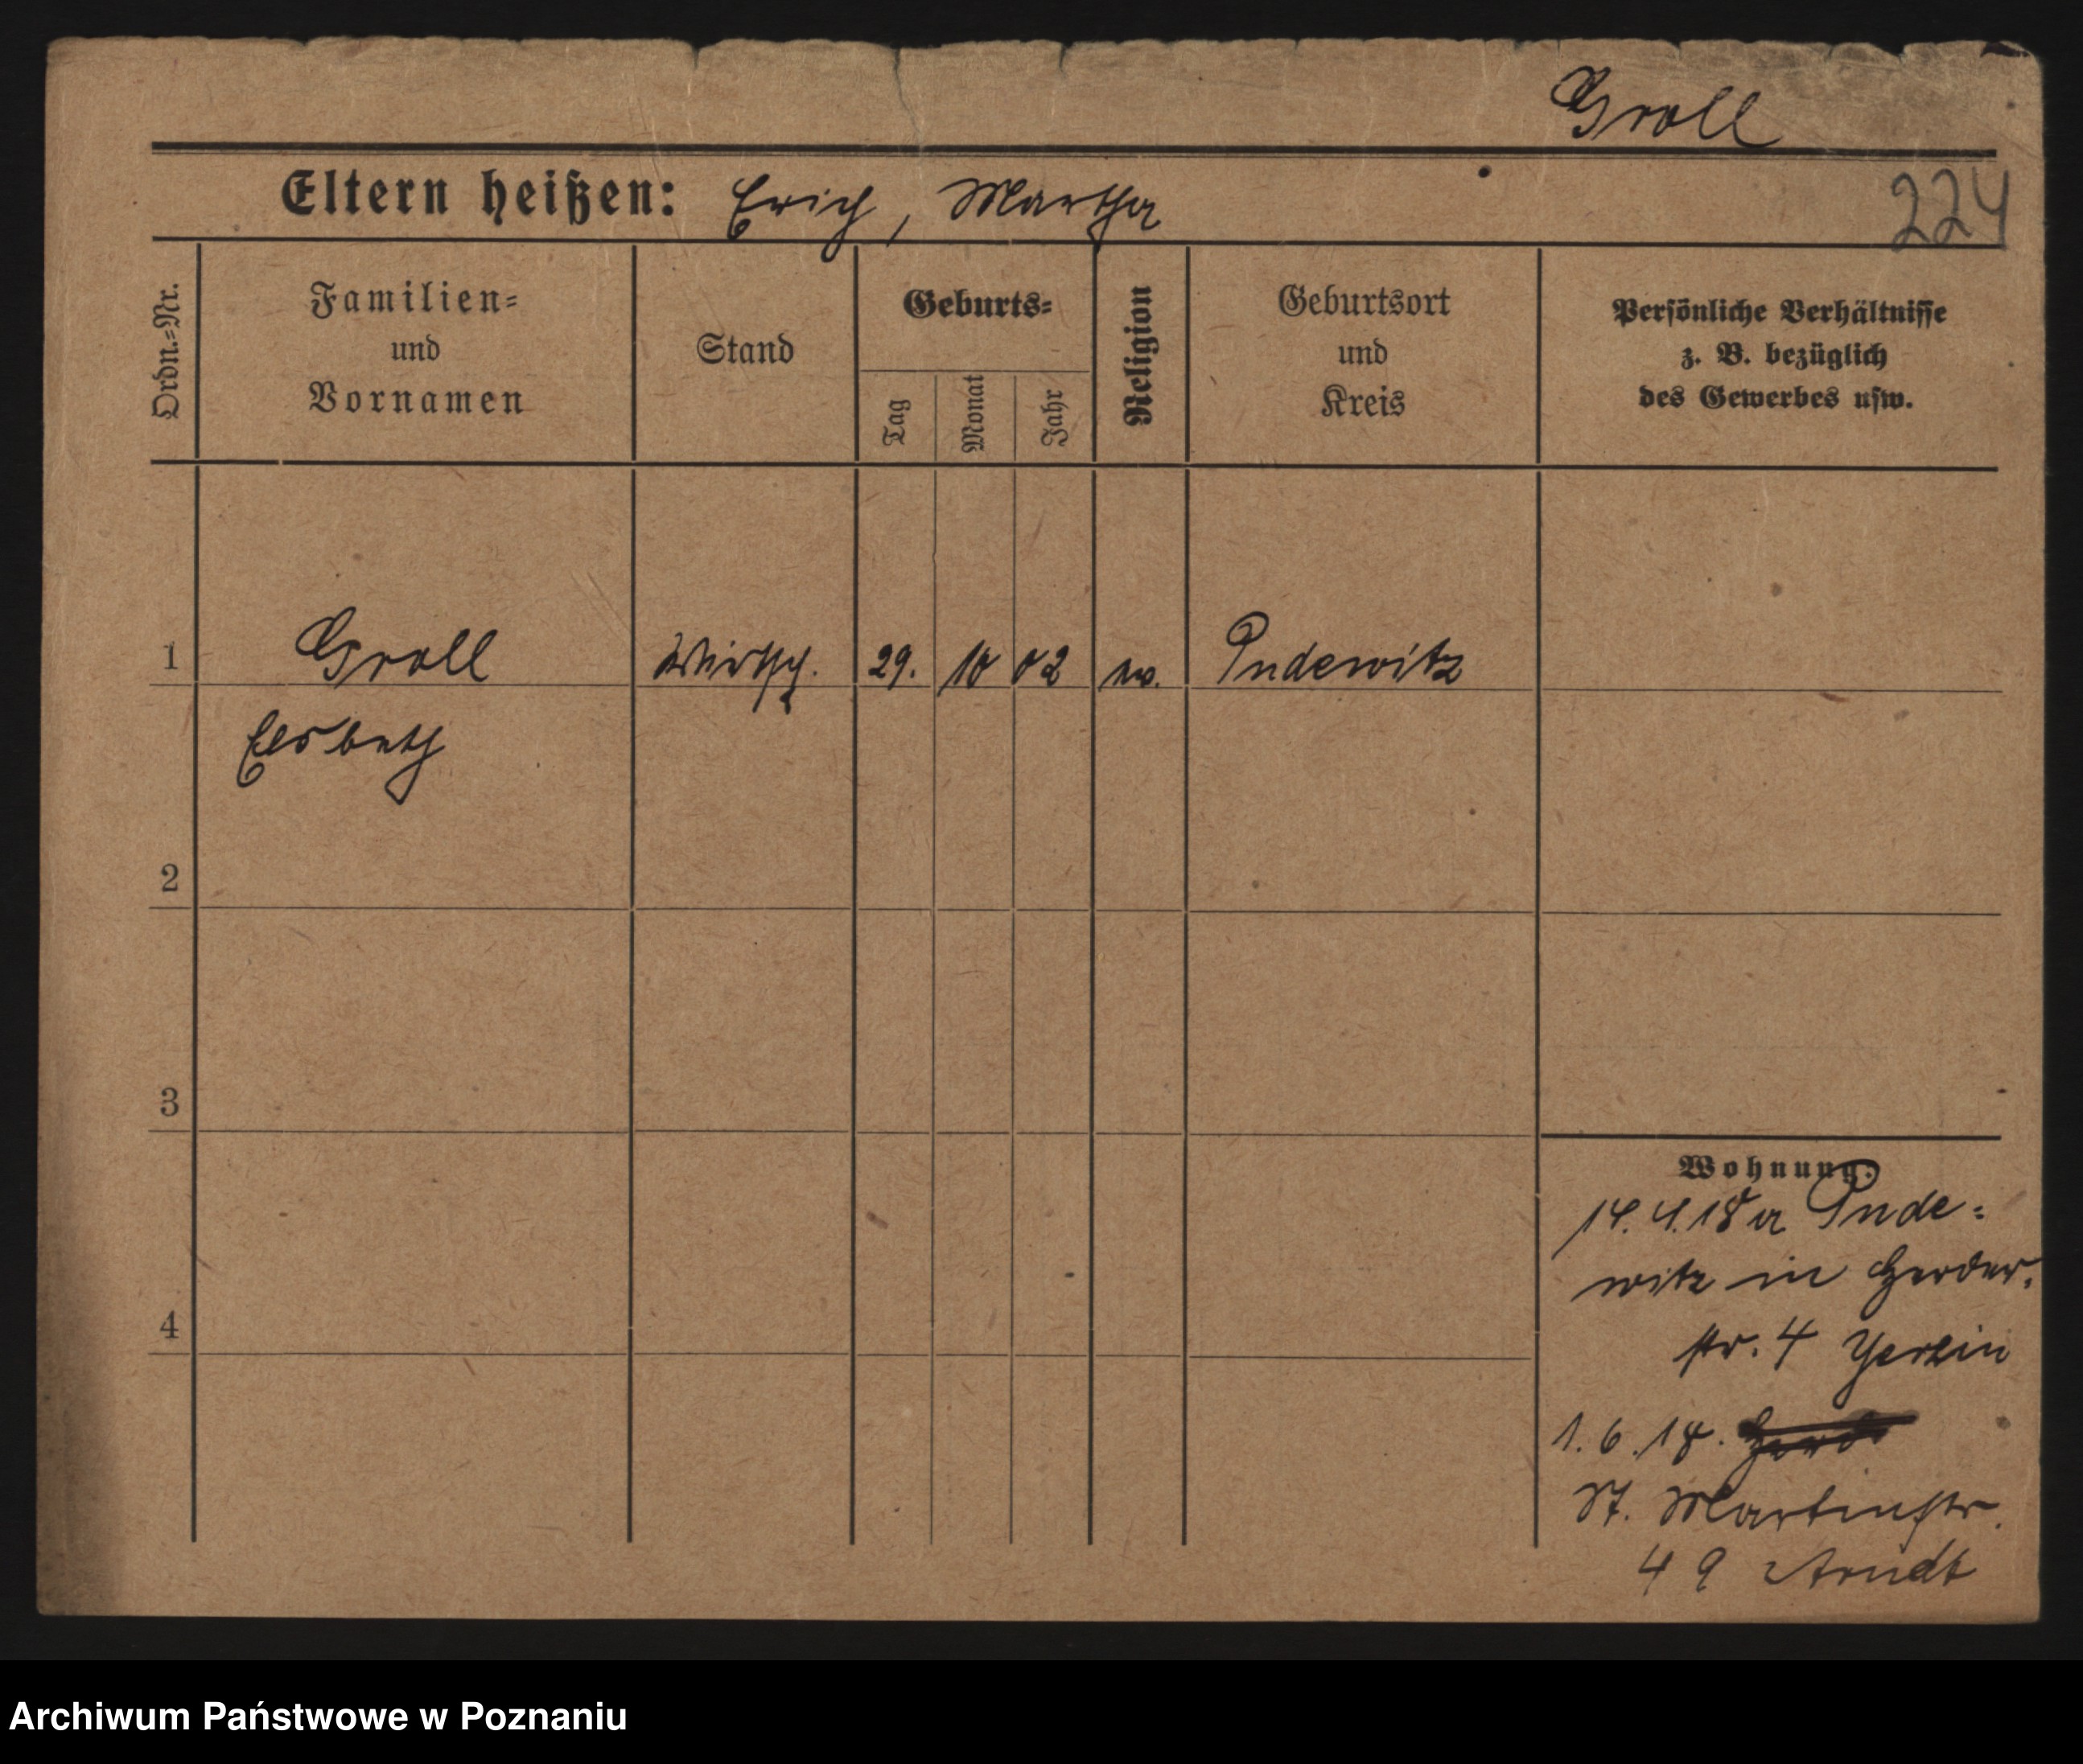 Groll
Eltern heißen: Erich, Martha
224
Ordn.=Nr.
Familien=
und
Vornamen
Stand
Geburts=
Tag
Monat
Jahr
Religion
Geburtsort
und
Kreis
Persönliche Verhältnisse
z. B. bezüglich
des Gewerbes usw.
1 Groll Wirtsch. 29. 10 02 ev. Pudewitz
Elsbeth
2
3
4
Wohnung:
14. 4. 18 a Pude=
witz in Herder=
str. 4
1. 6. 18.
St. Martinstr.
49 Arndt
Archiwum Państwowe w Poznaniu